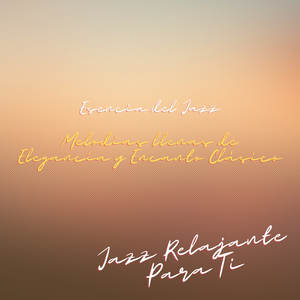 Esencia del Jazz
Melodías llenas de
Elegancia y Encanto Clásico
Jazz Relajante
Para Ti